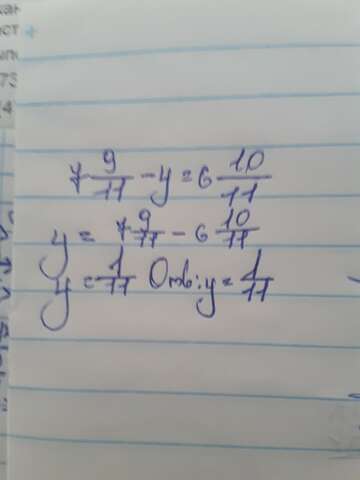 7 9/11 - y = 6 10/11
y = 7 9/11 - 6 10/11
y = 1/11 Отв: y = 1/11